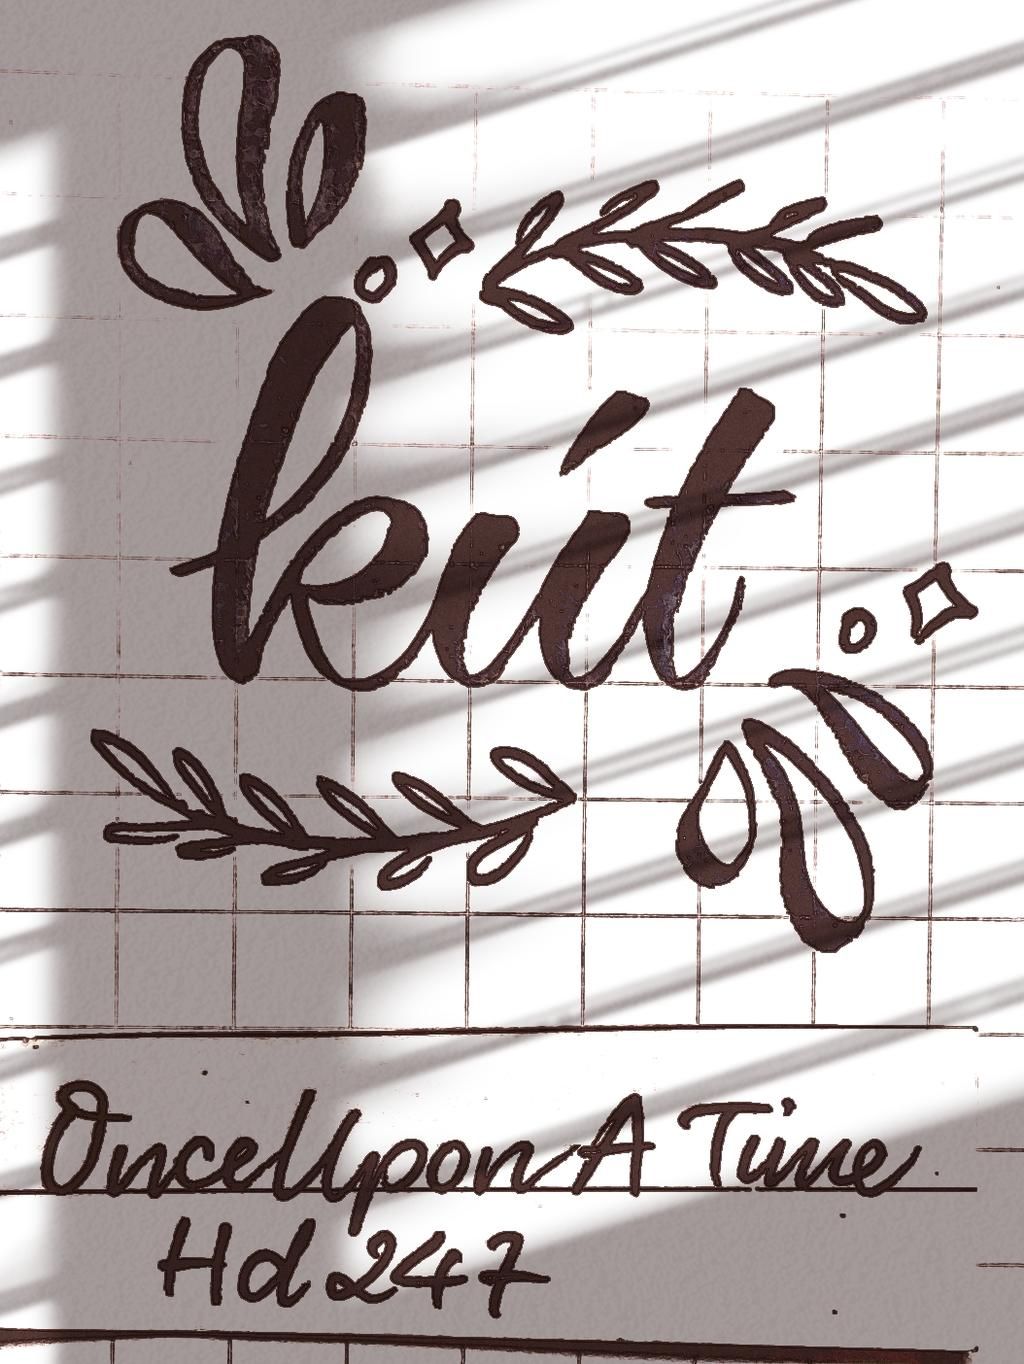 kút
OnceUpon A Time
Hd 247